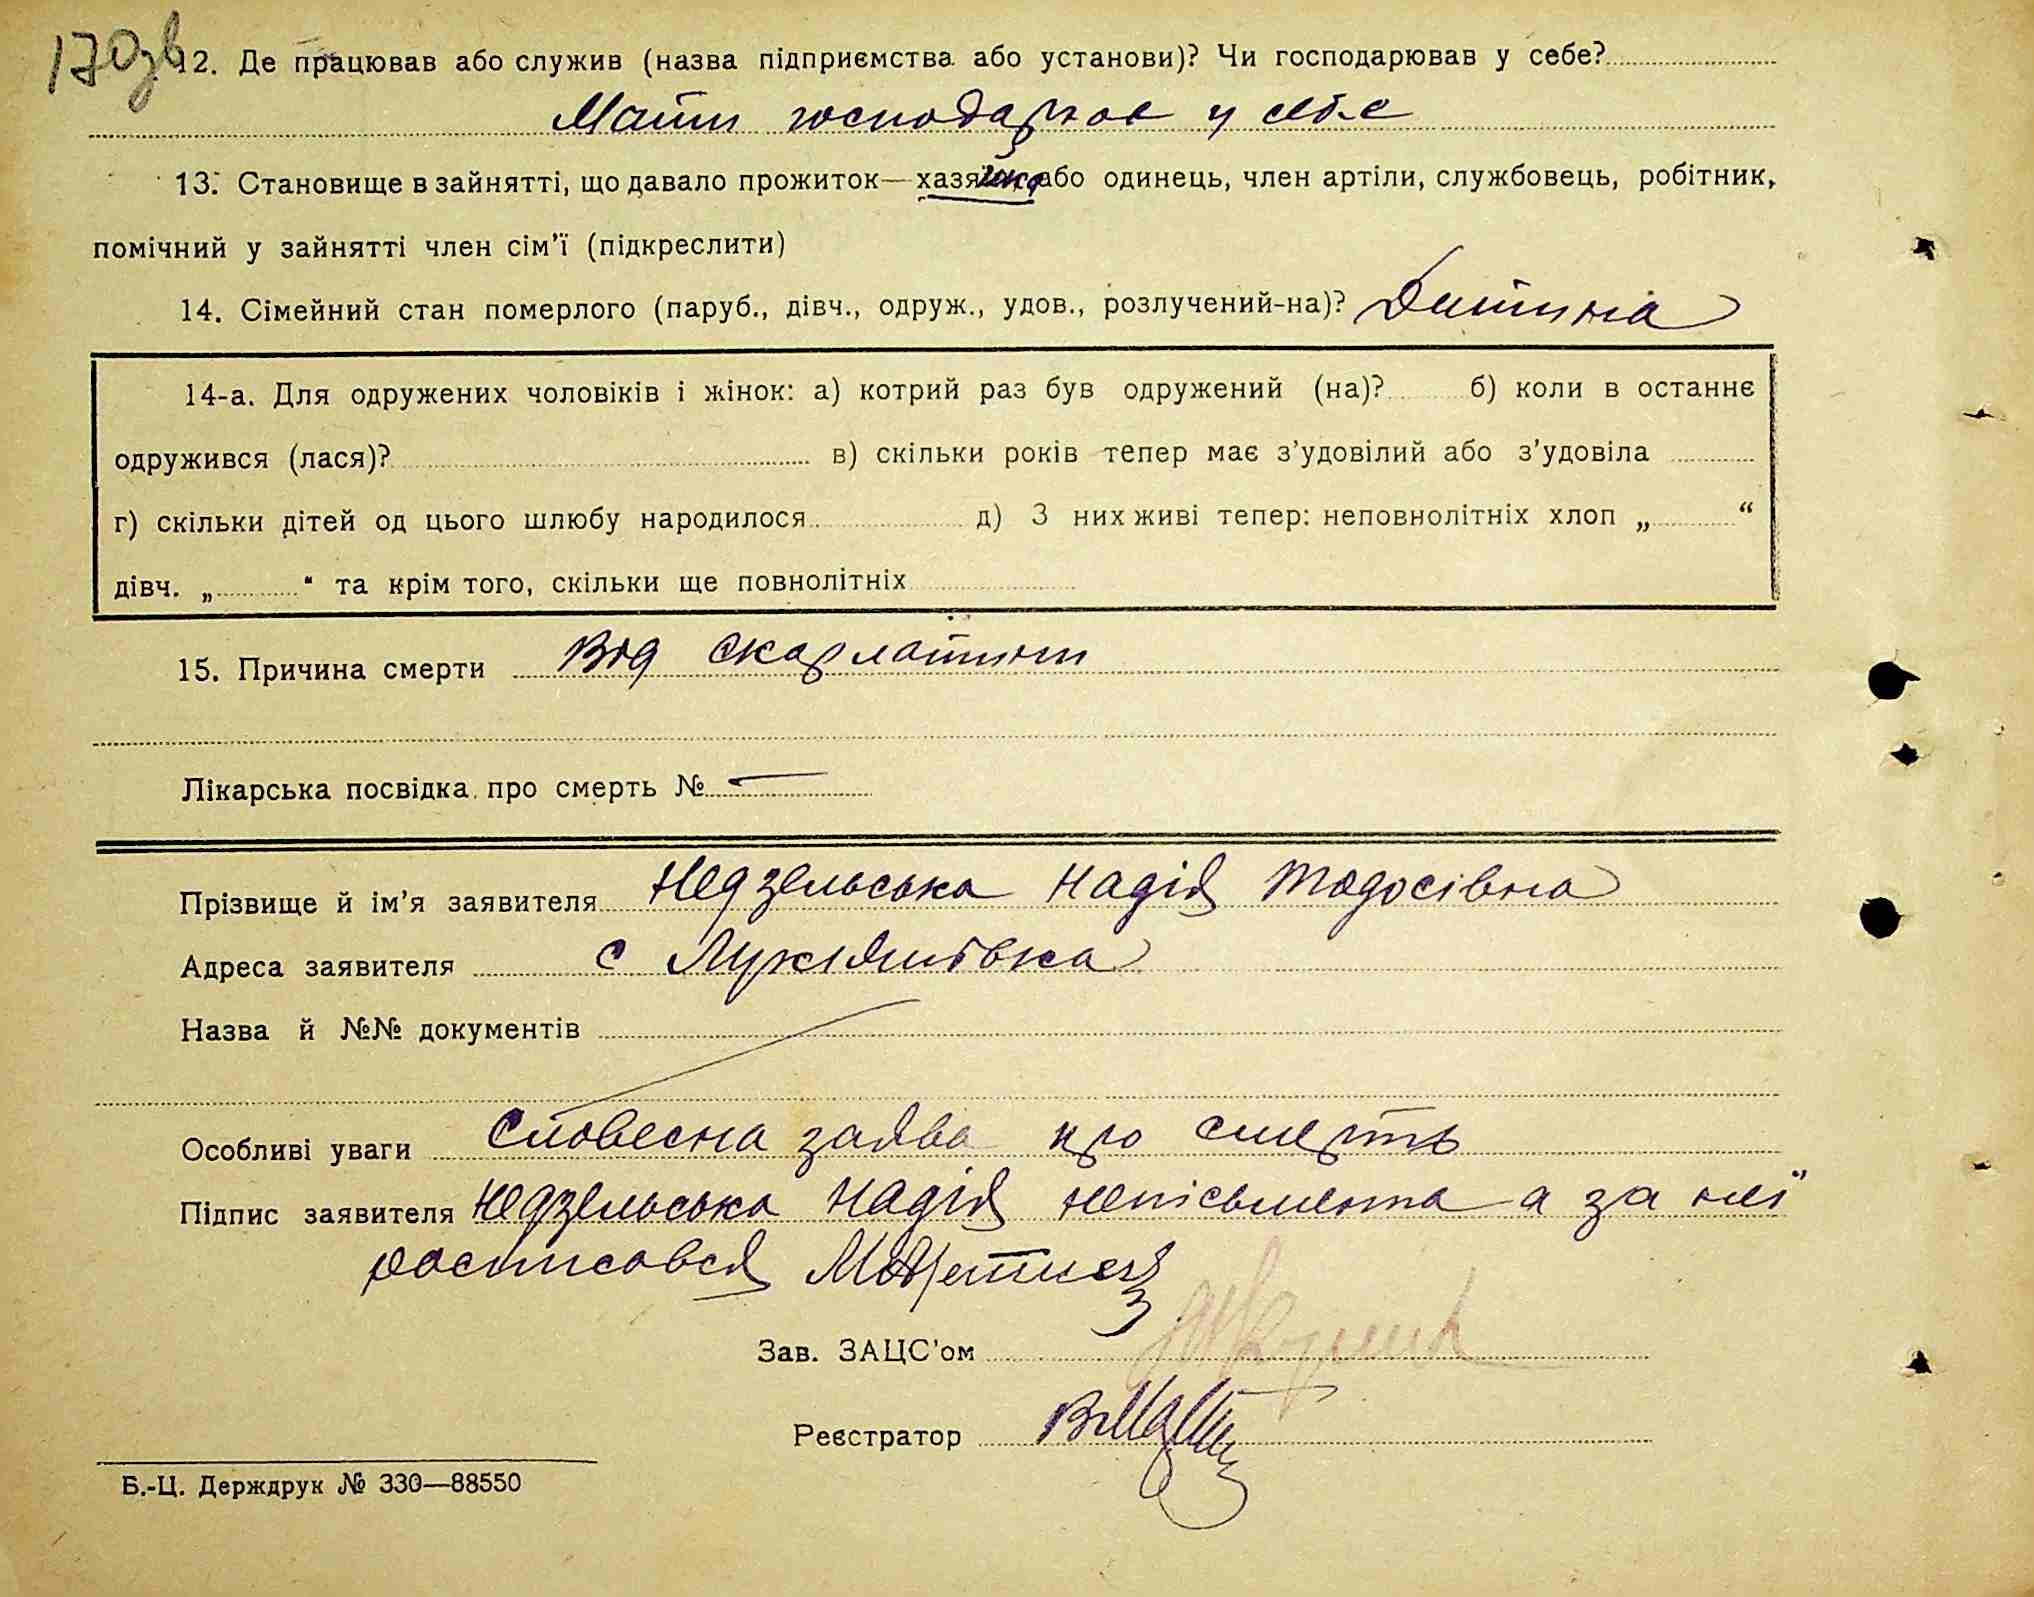 170зв
12. Де працював або служив (назва підприємства або установи)? Чи господарював у себе?
Мати господарює у себе
13. Становище в зайнятті, що давало прожиток—хазяйка або одинець, член артілі, службовець, робітник,
помічний у зайнятті член сім'ї (підкреслити)
14. Сімейний стан померлого (паруб., дівч., одруж., удов., розлучений-на)? Дитина
14-а. Для одружених чоловіків і жінок: а) котрий раз був одружений (на)? б) коли в останнє
одружився (лася)? в) скільки років тепер має з'удовілий або з'удовіла
г) скільки дітей од цього шлюбу народилося д) З них живі тепер: неповнолітніх хлоп „ “
дівч. „ “ та крім того, скільки ще повнолітніх
15. Причина смерти Від скарлатини
Лікарська посвідка про смерть № —
Прізвище й ім'я заявителя Недзельська Надія Тодосівна
Адреса заявителя с Лукяшівка
Назва й №№ документів
Особливі уваги Словесна заява про смерть
Підпис заявителя Недзельська Надія непісьмена а за неї
росписовся
Зав. ЗАЦС'ом
Реєстратор
Б.-Ц. Держдрук № 330—88550